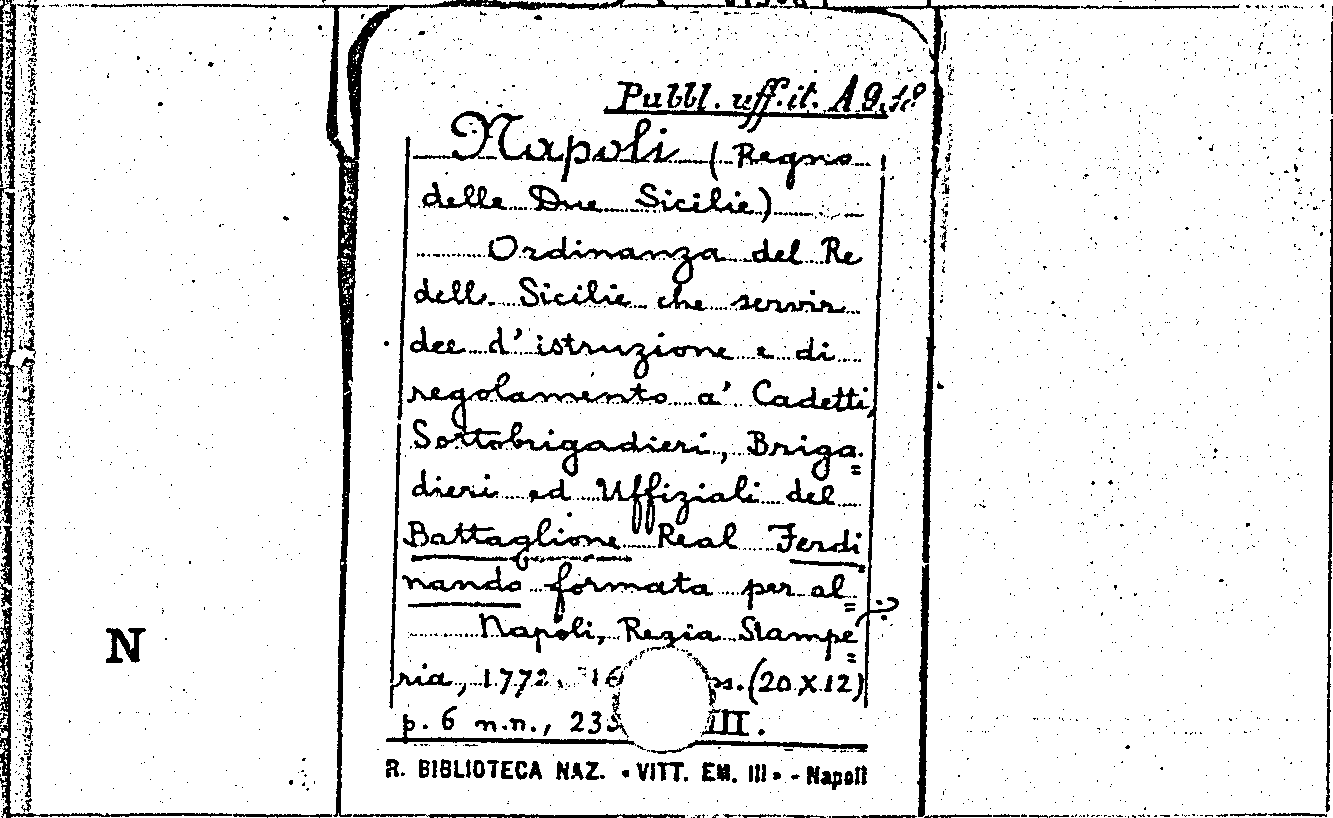 Pubbl. uff. it. A 9.18
Napoli (Regno
delle Due Sicilie)
Ordinanza del Re
dell. Sicilie che servir
dee d'istruzione e di
regolamento a' Cadetti,
Sottobrigadieri, Briga=
dieri ed Uffiziali del
Battaglione Real Ferdi
nando formata per al=
Napoli, Regia Stampe=
ria, 1772. 16 (20 X 12)
p. 6 n.n., 235 III.
R. BIBLIOTECA NAZ. «VITT. EM. III» - Napoli
N